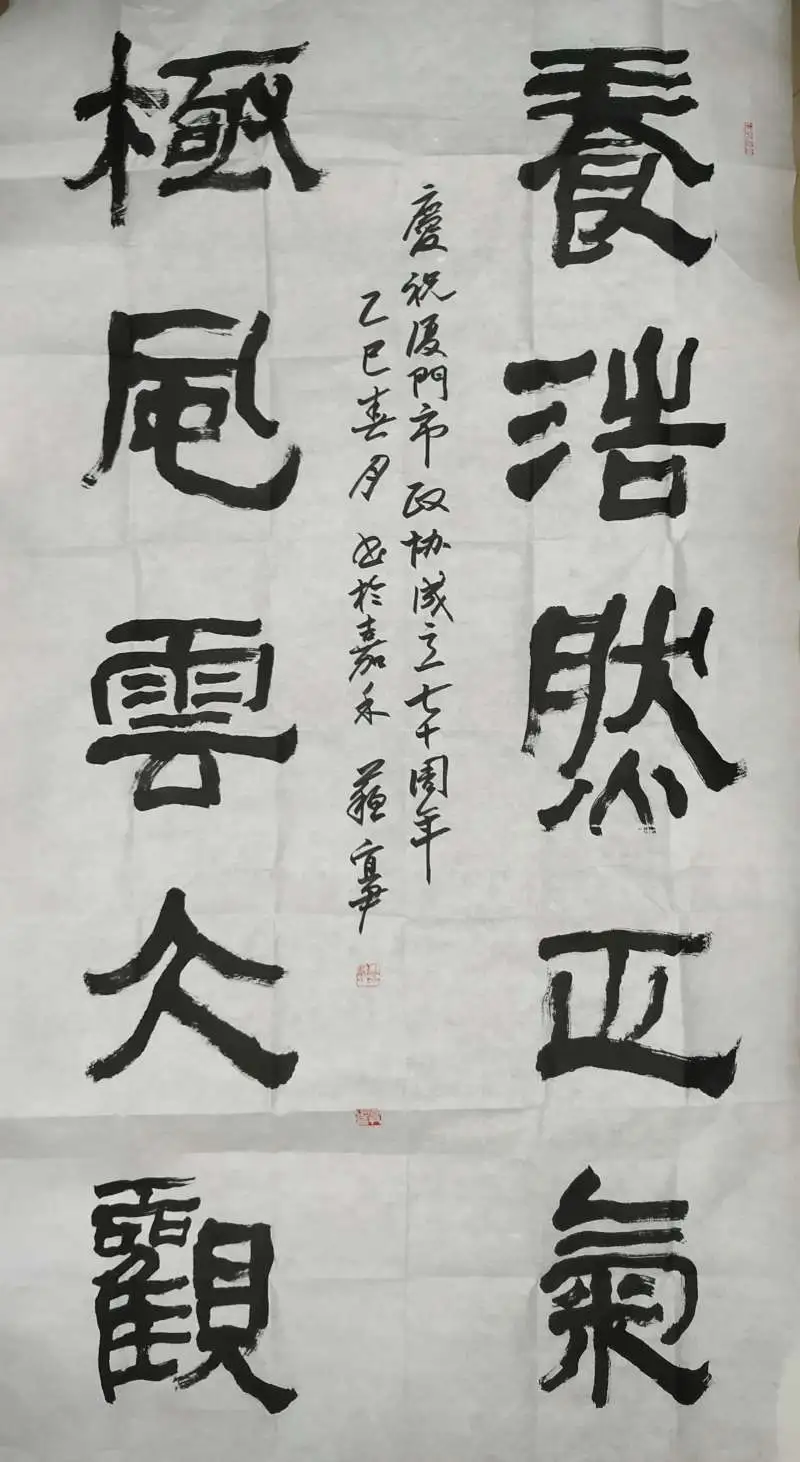 養浩然正氣
極風雲大觀
慶祝厦門市政协成立七十周年
乙巳春月書於嘉禾蘓宜尹